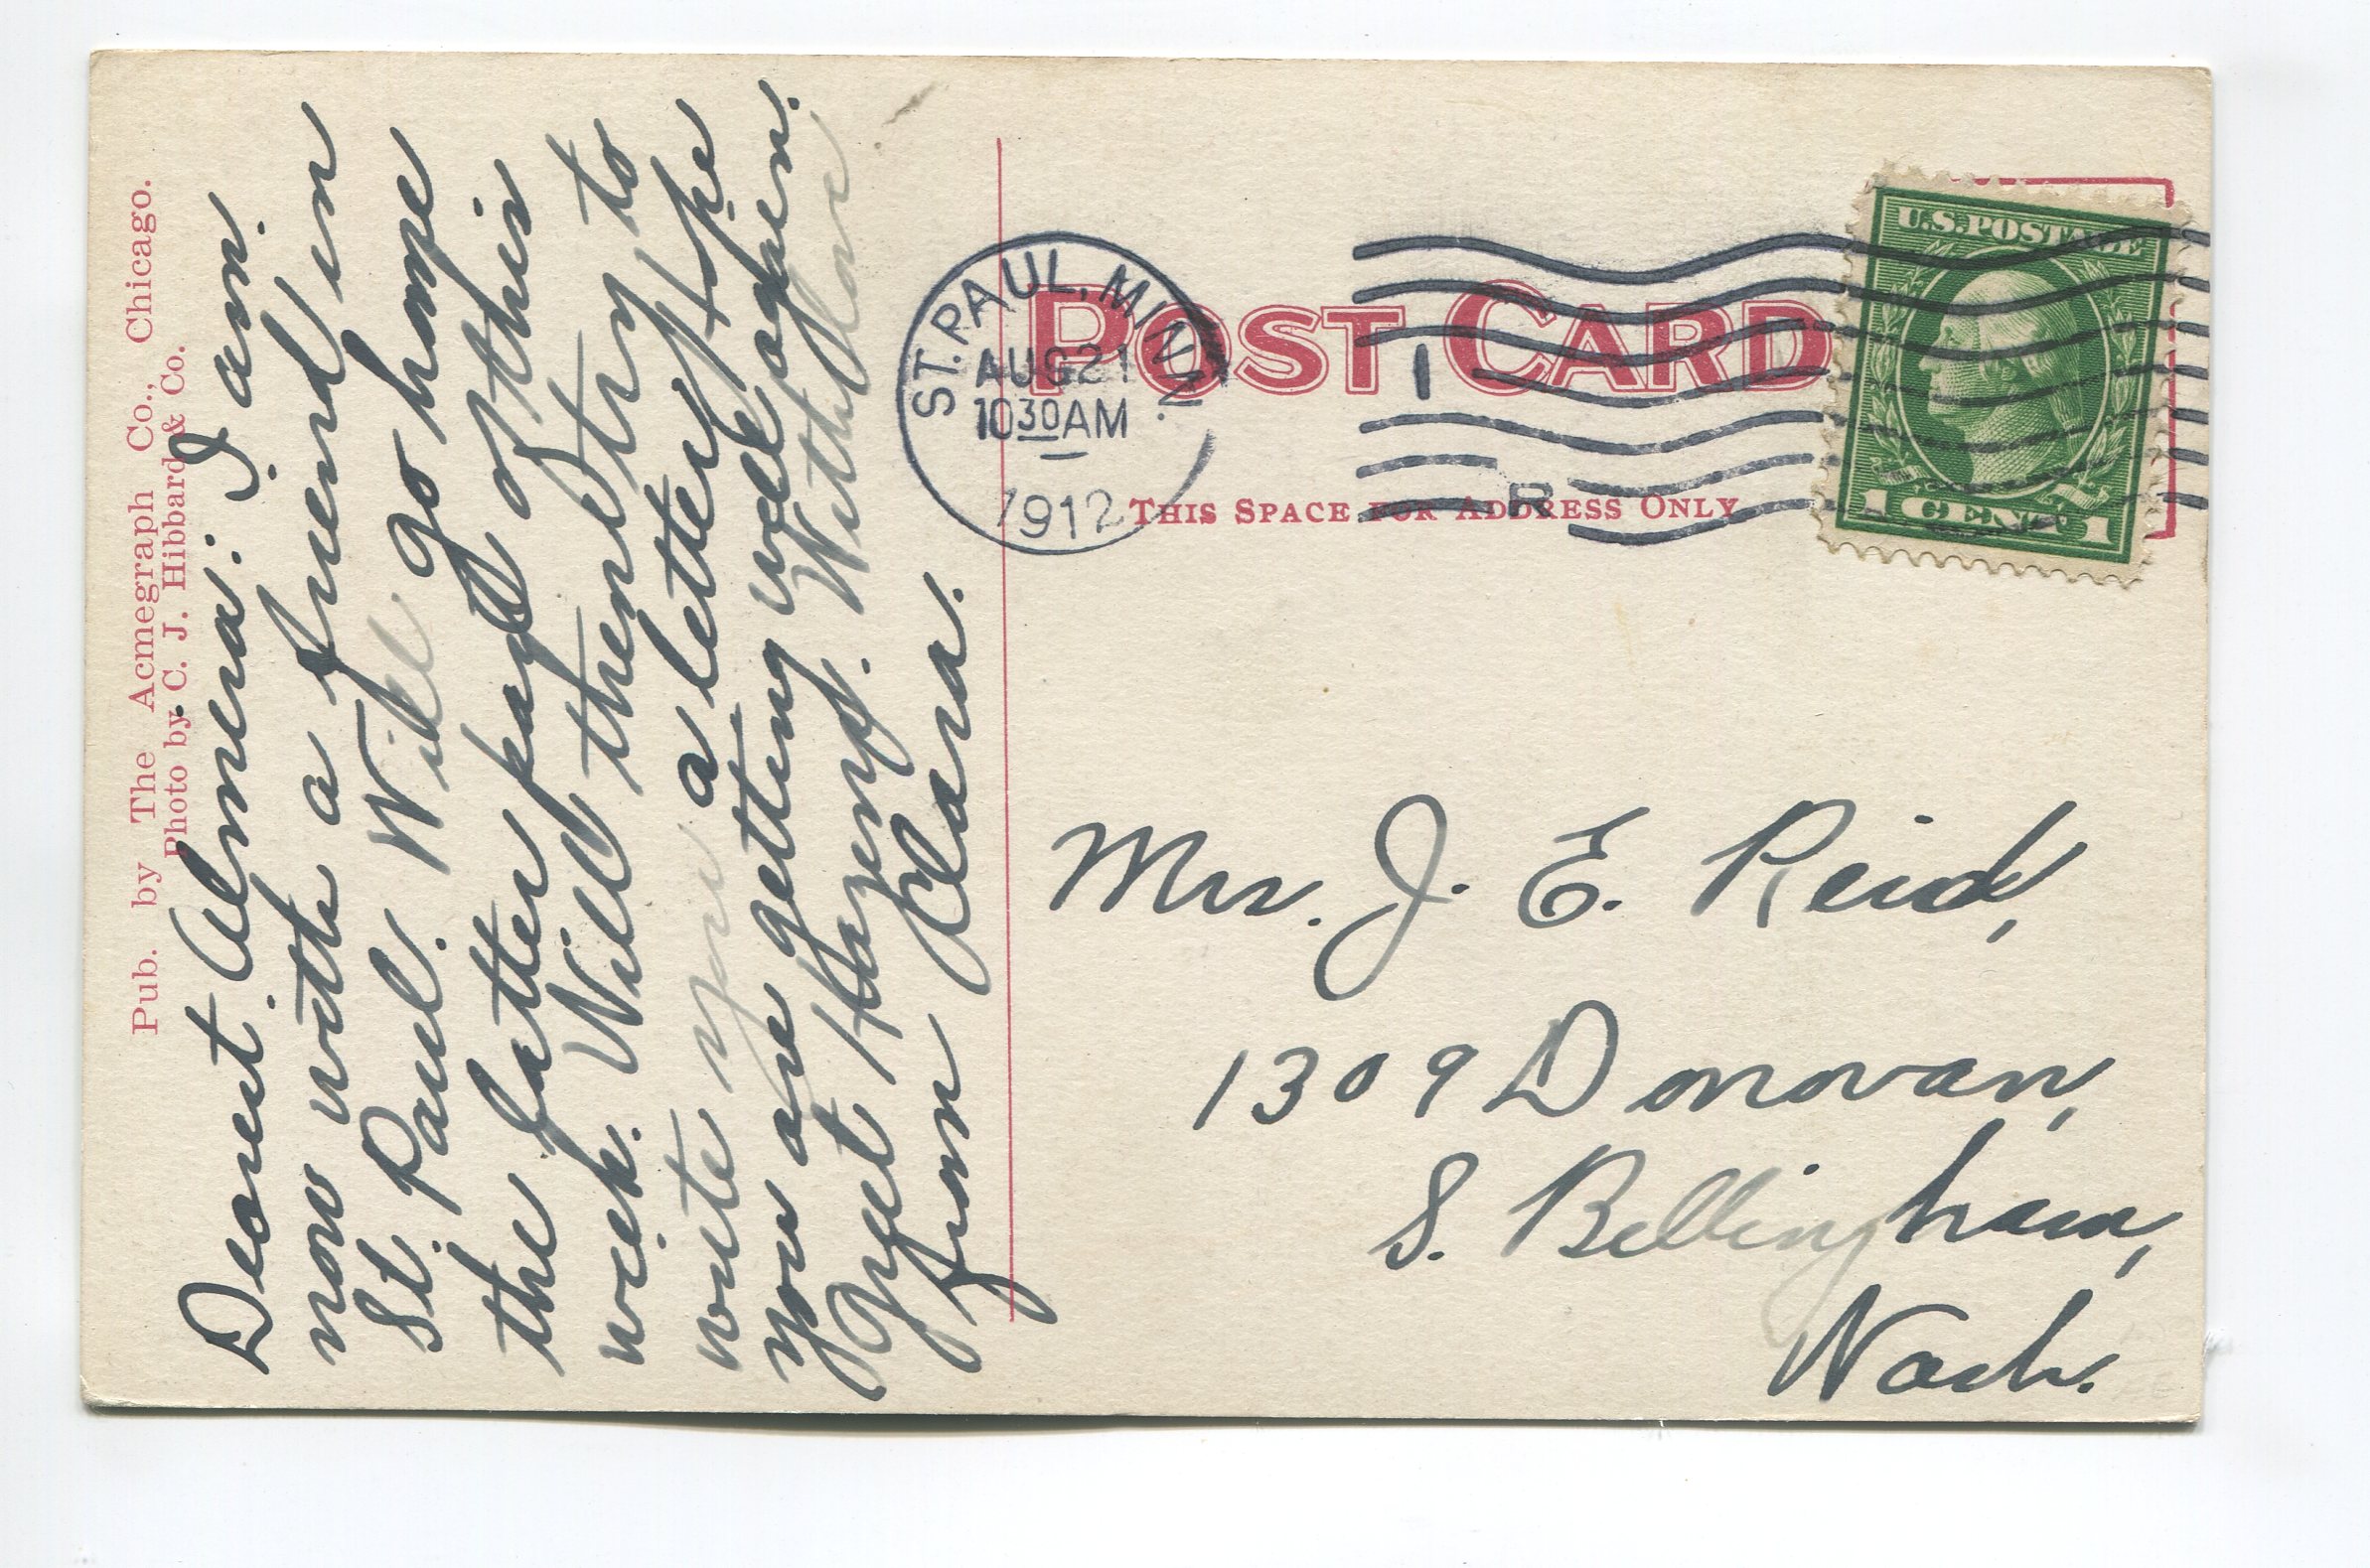 Pub. by The Acmegraph Co., Chicago.
Photo by C. J. Hibbard & Co.
Dearest Almena: I am
now with a friend in
St. Paul. Will go home
the latter part of this
week. Will then try to
write you a letter. Hope
you are getting well again.
Greet Hazens. With love
from Clara.
POST CARD
ST. PAUL, MINN.
AUG 21
10 30 AM
1912
1
R
THIS SPACE FOR ADDRESS ONLY
U.S. POSTAGE
1 CENT 1
Mrs. J. E. Reid,
1309 Donovan,
S. Bellingham,
Wash.